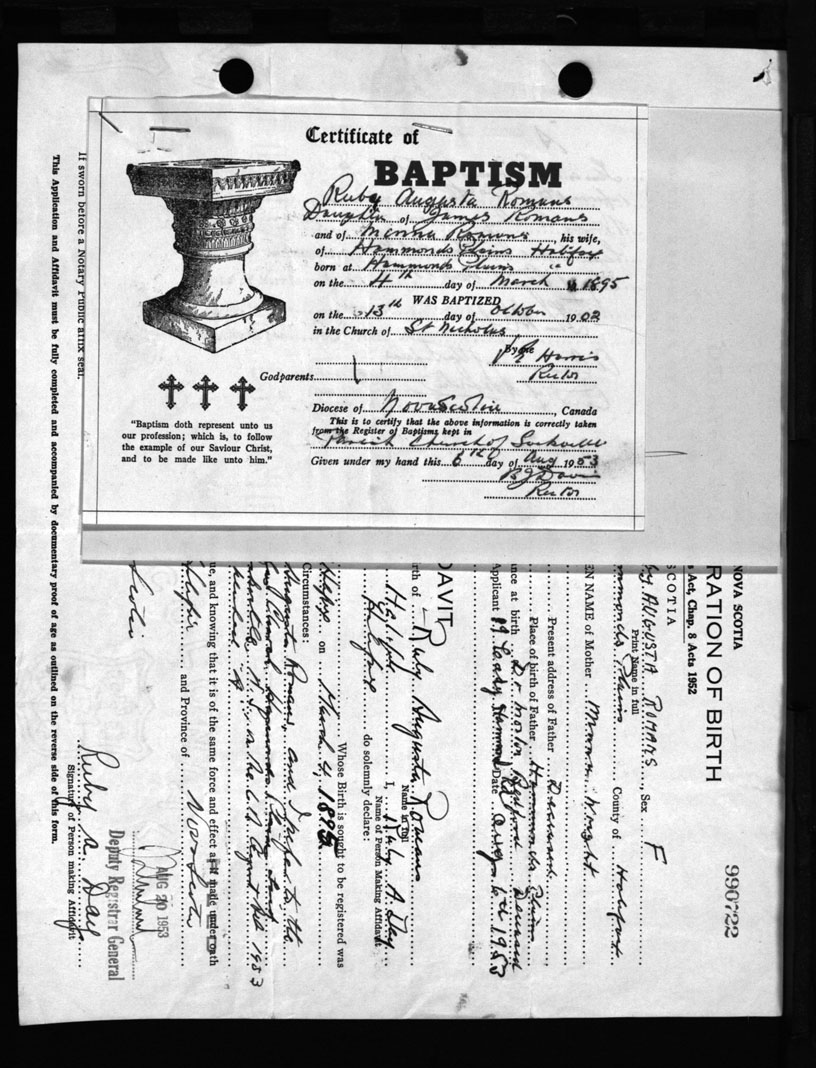 Certificate of
BAPTISM
Ruby Augusta Romans
Daughter of James Romans
and of Romans, his wife,
of Hammonds Plains Halifax
born at Hammonds Plains "
on the 4th day of March 1895
WAS BAPTIZED
on the 13th day of October 1903
in the Church of St Nicholas
By me
Harris
Rector
Godparents
Diocese of Nova Scotia, Canada
This is to certify that the above information is correctly taken
from the Register of Baptisms kept in
Parish Church of Sackville
Given under my hand this 6th day of Aug 1953
Davis
Rector
"Baptism doth represent unto us
our profession; which is, to follow
the example of our Saviour Christ,
and to be made like unto him."
NOVA SCOTIA
Act, Chap. 8 Acts 1952
RATION OF BIRTH
990722
SCOTIA
by AUGUSTA ROMANS, Sex F
Print Name in full
mmonds Plains County of Halifax
EN NAME of Mother Wright
Present address of Father Deceased
Place of birth of Father Hammonds Plains
nce at birth Dr. Morton Bedford Deceased
Applicant Date Aug 6th 1953
DAVIT
rth of Ruby Augusta Romans
Name in full
Halifax I, Ruby A. Day
Name of Person Making Affidavit
Halifax do solemnly declare:
Whose Birth is sought to be registered was
on March 4, 1895
Circumstances:
Augusta Romans, and I refer to the
1953
ue, and knowing that it is of the same force and effect as if made under oath
and Province of Nova Scotia
Scotia
AUG 20 1953
Deputy Registrar General
Ruby A. Day
Signature of Person making Affidavit
If sworn before a Notary Public affix seal.
This Application and Affidavit must be fully completed and accompanied by documentary proof of age as outlined on the reverse side of this form.